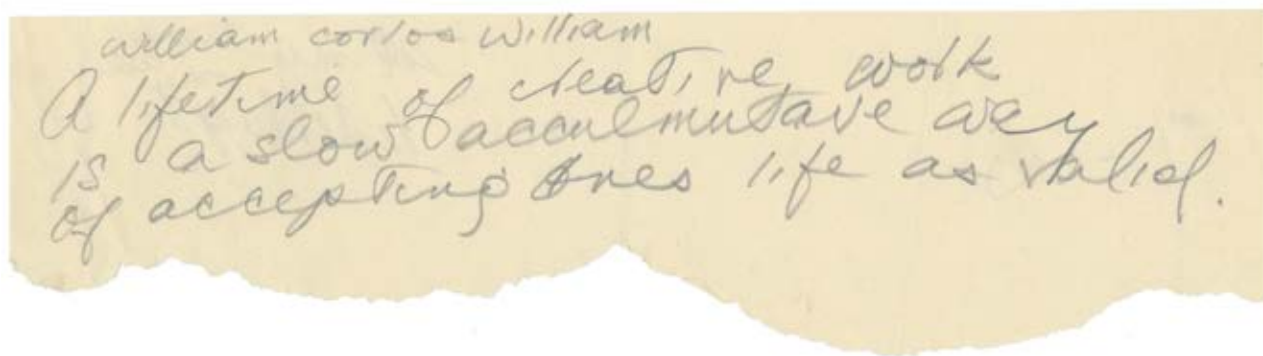 william corlos william
A lifetime of creative work
is a slow acculmutave way
of accepting ones life as valid.